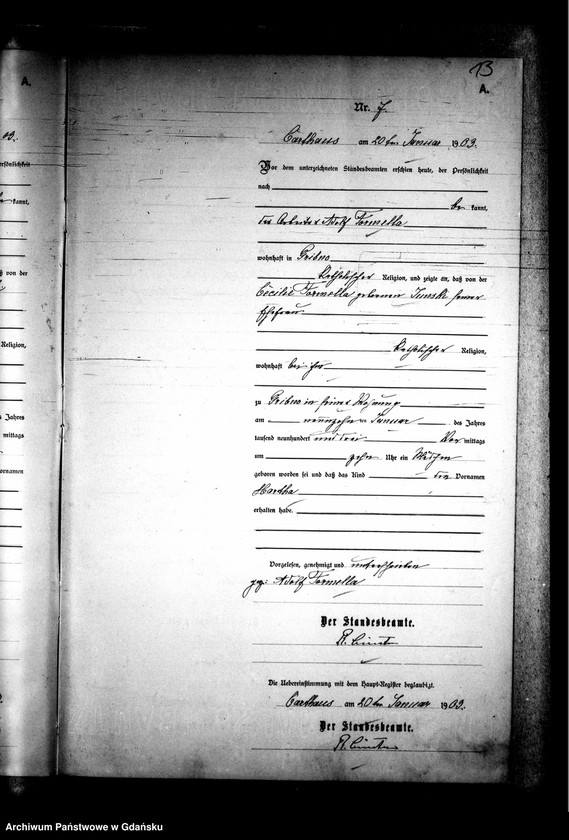 13
A.
A.
Nr. 7.
Carthaus am 20ten Januar 1903.
Vor dem unterzeichneten Standesbeamten erschien heute, der Persönlichkeit
nach
be kannt,
der Arbeiter Adolf Formella
wohnhaft in Gribno
katholischer Religion, und zeigte an, daß von der
Cecilie Formella geborenen seiner
Ehefrau
katholischer Religion,
wohnhaft bei ihm
zu Gribno in seiner Wohnung
am neunzehnten Januar des Jahres
tausend neunhundert und drei Vor mittags
um zehn Uhr ein Mädchen
geboren worden sei und daß das Kind den Vornamen
Martha
erhalten habe.
Vorgelesen, genehmigt und unterschrieben
gez. Adolf Formella
Der Standesbeamte.
Die Uebereinstimmung mit dem Haupt-Register beglaubigt.
Carthaus am 20ten Januar 1903.
Der Standesbeamte.
Archiwum Państwowe w Gdańsku